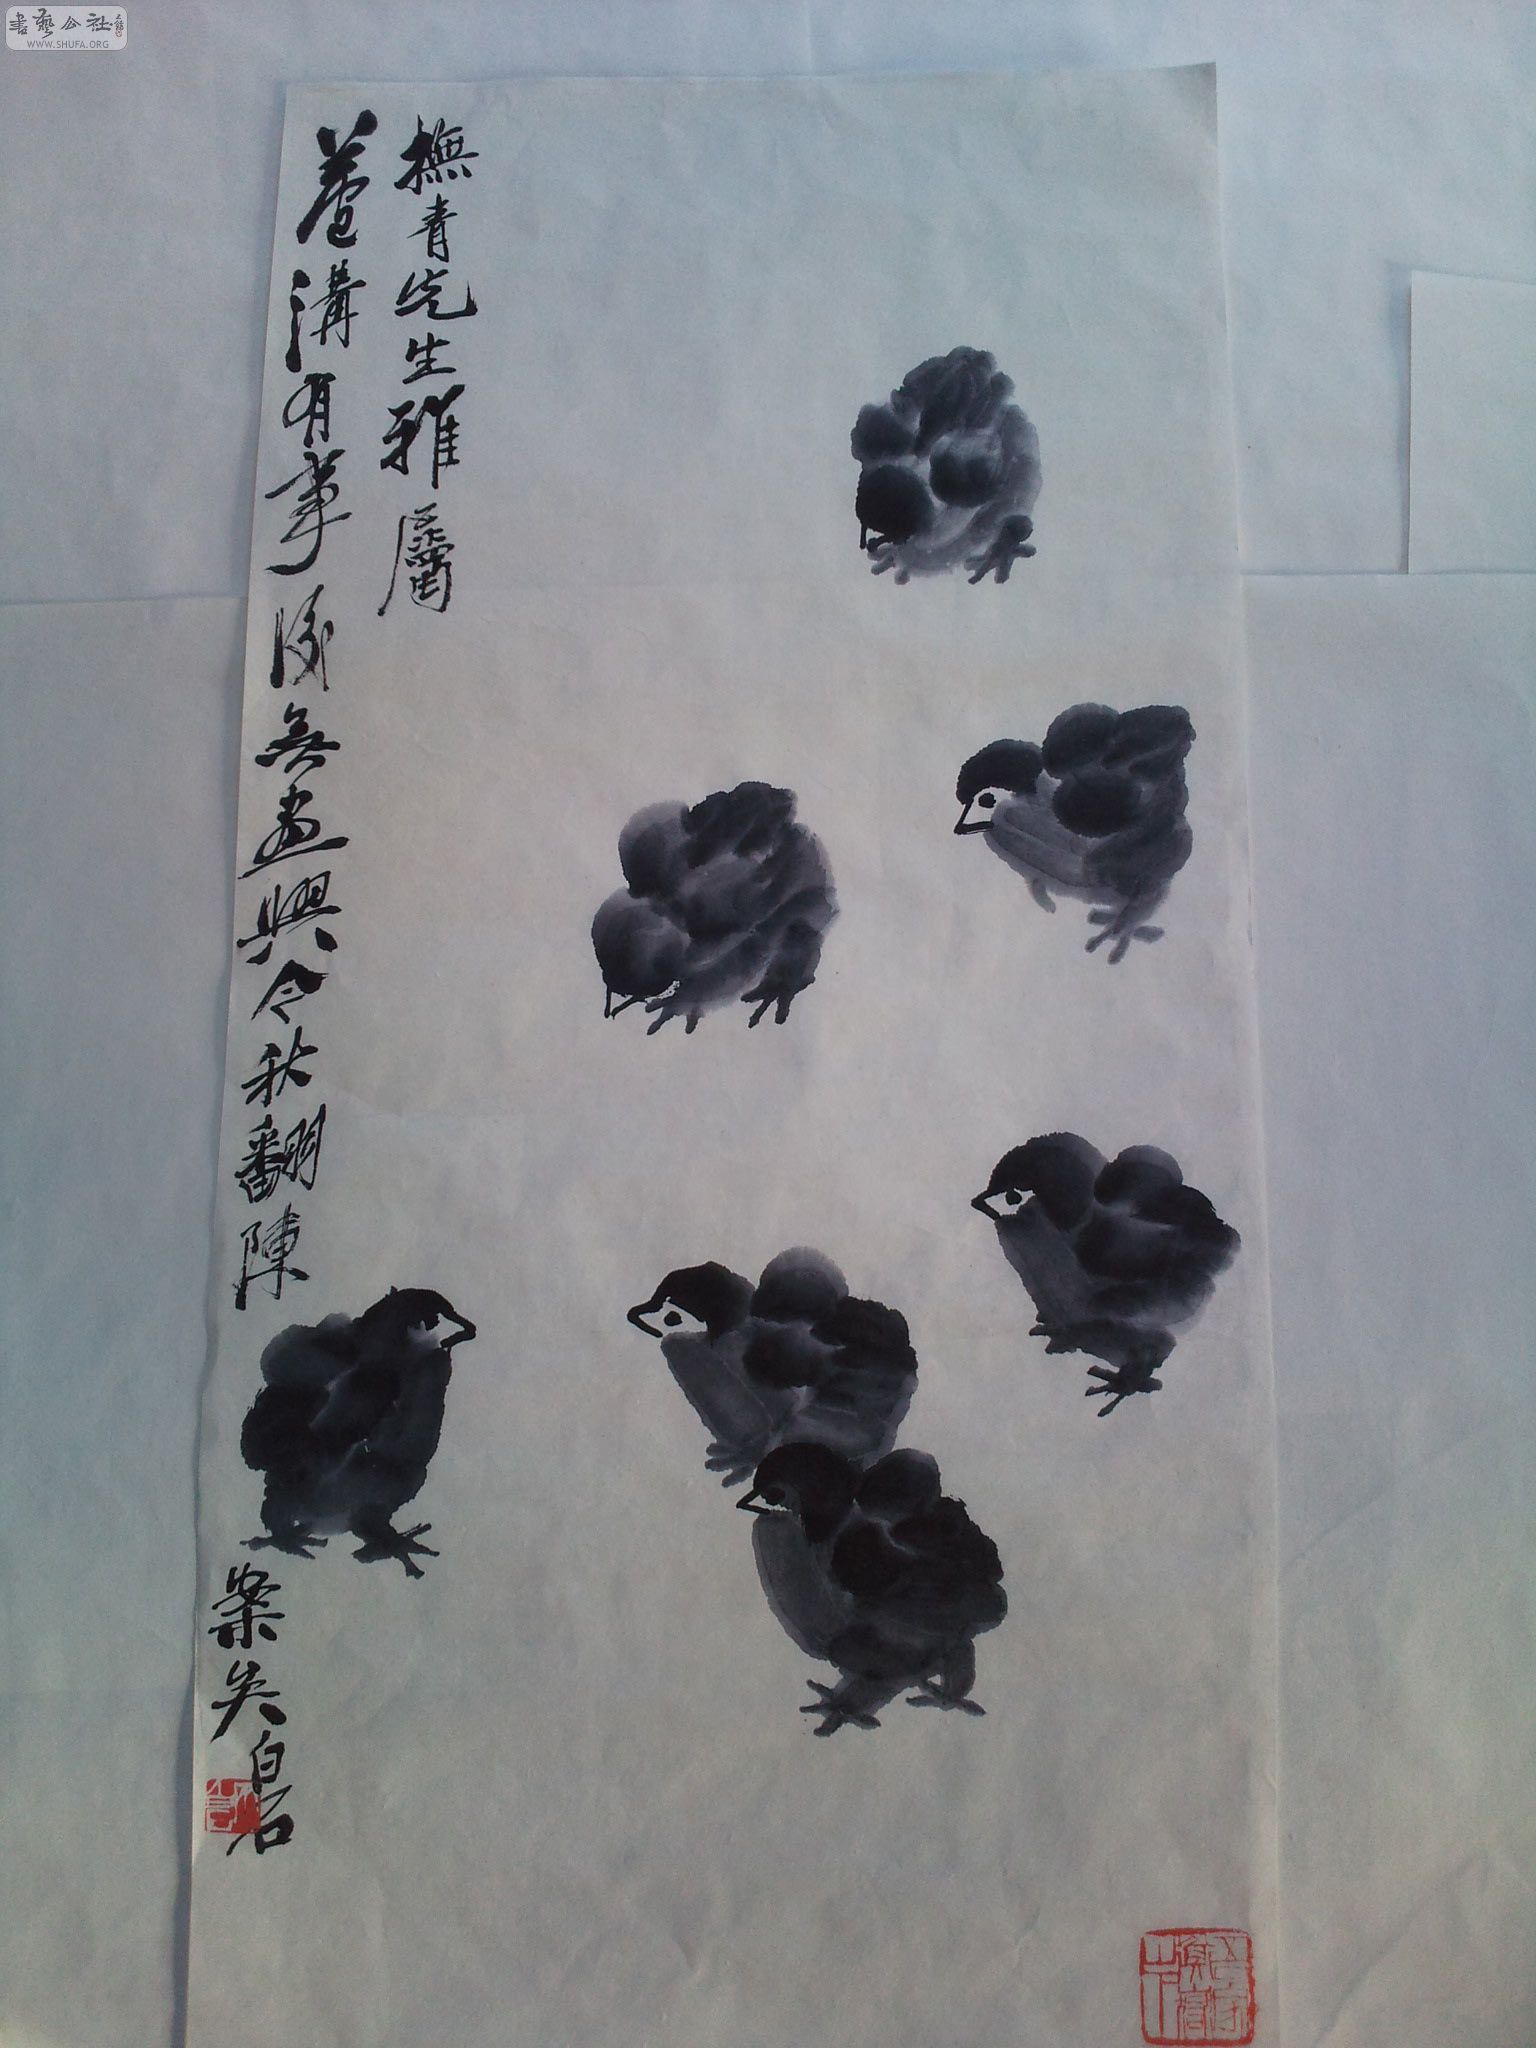 書藝公社
WWW.SHUFA.ORG
撫青先生雅屬
蘆溝有事後無畫興今秋翻陳
案矣白石